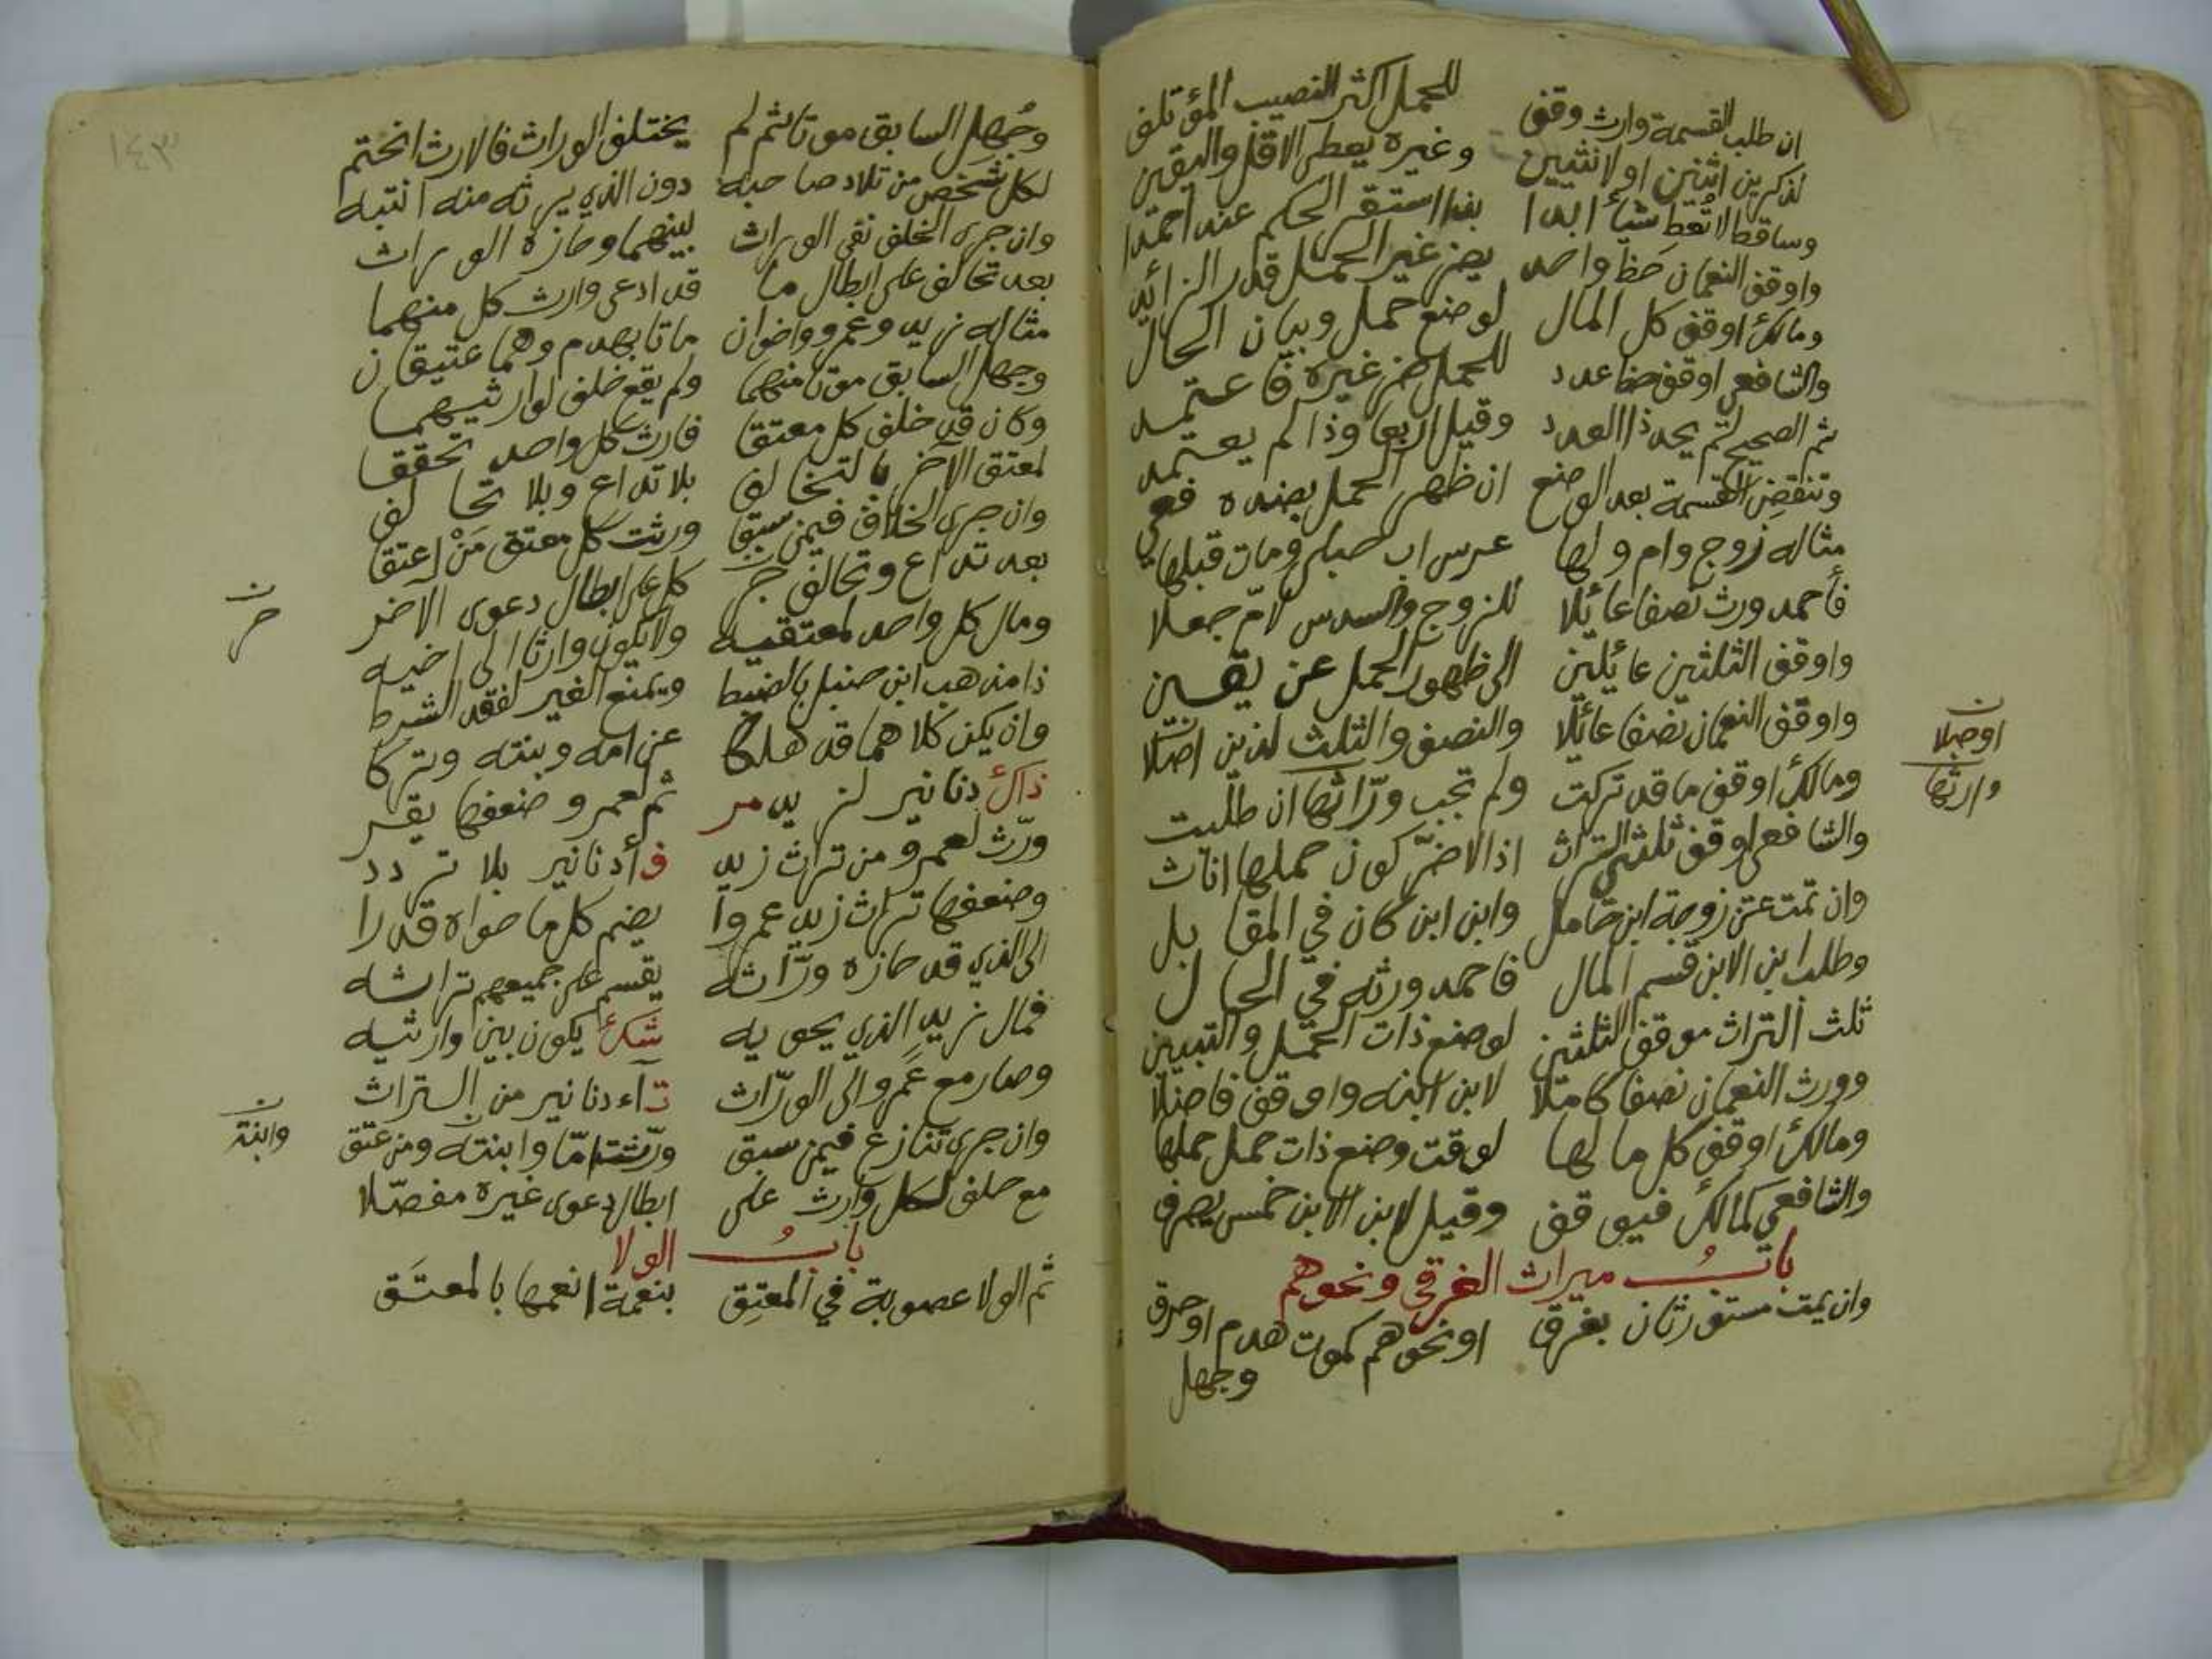 ان طلب القسمة وارث وقف للحمل اكثر النصيب المؤتلف
لذكرين اثنين او لانثيين وغيره يعطى الاقل واليقين
وساقطا لا تعط شيأ ابدا بذا استقر الحكم عند احمدا
واوقف النعمان حظ واحد يضر غير الحمل قدر الزائد
ومالك اوقف كل المال لوضع حمل وبيان الحال
والشافعي اوقف ضا عدد للحمل ضر غيره فاعتمد
ثم الصحيح لم يحد ذا العدد وقيل اربعا وذا لم يعتمد
وتنقض القسمة بعد الوضع ان ظهر الحمل بضده فعي
مثاله زوج وام ولها عرس اب حبلى ومات قبلها
فأحمد ورث نصفا عائلا للزوج والسدس لام جعلا
واوقف الثلثين عائلين الى ظهور الحمل عن يقين
واوقف النعمان نصفا عائلا والنصف والثلث لذين اصلا
ومالك اوقف ما قد تركت ولم تجب ورّاثها ان طلبت
والشافعي اوقف ثلثي التراث اذ الاضرّ كون حملها اناث
وان تمت عن زوجة ابن حامل وابن ابن كان في المقابل
وطلب ابن الابن قسم المال فاحمد ورثه في الحال
ثلث التراث موقف الثلثين لوضع ذات الحمل والتبيين
وورث النعمان نصفا كاملا لابن ابنه واوقف فاضلا
ومالك اوقف كل ما لها لوقت وضع ذات حمل حملها
والشافعي كمالك فيوقف وقيل لابن الابن خمس يصرف
باب ميراث الغرقى ونحوهم
وان يمت مستغرثان بغرق او نحوهم كموت هدم او حرق
وجهل
اوصلا
وارثها
١٤٣
وجُهل السابق موتا ثم لم يختلف الوراث فالارث انختم
لكل شخص من تلاد صاحبه دون الذي يرثه منه انتبه
وان جرى الخلف نفي الوراث بينهما وحازه الوراث
بعد تحالف على ابطال ما قد ادعى وارث كل منهما
مثاله زيد وعمرو واخوان ماتا بهدم وهما عتيقان
وجهل السابق موتا منهما ولم يقع خلف لوارثيهما
وكان قد خلف كل معتقا فارث كل واحد تحققا
لمعتق الآخر بالتخالف بلا تداع وبلا تحالف
وان جرى الخلاف فيمن سبق ورثت كل معتق مَنْ اعتقا
بعد تداع وتحالف جر كل على ابطال دعوى الآخر
ومال كل واحد لمعتقيه ولا يكون وارثا الى اخيه
ذا مذهب ابن حنبل بالضبط ويمنع الغير لفقد الشرط
وان يكن كلاهما قد هلكا عن امه وبنته وتركا
ذاك دنانير لزيد مر ثم لعمرو ضعفها يقر
ورّث لعمرو من تراث زيد ف أدنانير بلا تردد
وضعفها تراث زيد عمروا يضم كل ما حواه قدرا
الى الذي قد حازه ورّاثه يقسم على جميعهم تراثه
فمال زيد الذي يحويه شك يكون بين وارثيه
وصار مع عمرو الى الورّاث تآء دنانير من التراث
وان جرى تنازع فيمن سبق ورّثت امّا وابنته ومن عتق
مع حلف لكل وارث على ابطال دعوى غيره مفصّلا
باب الولا
ثم الولا عصوبة في المعتِق بنعمة انعمها بالمعتَق
وابنته